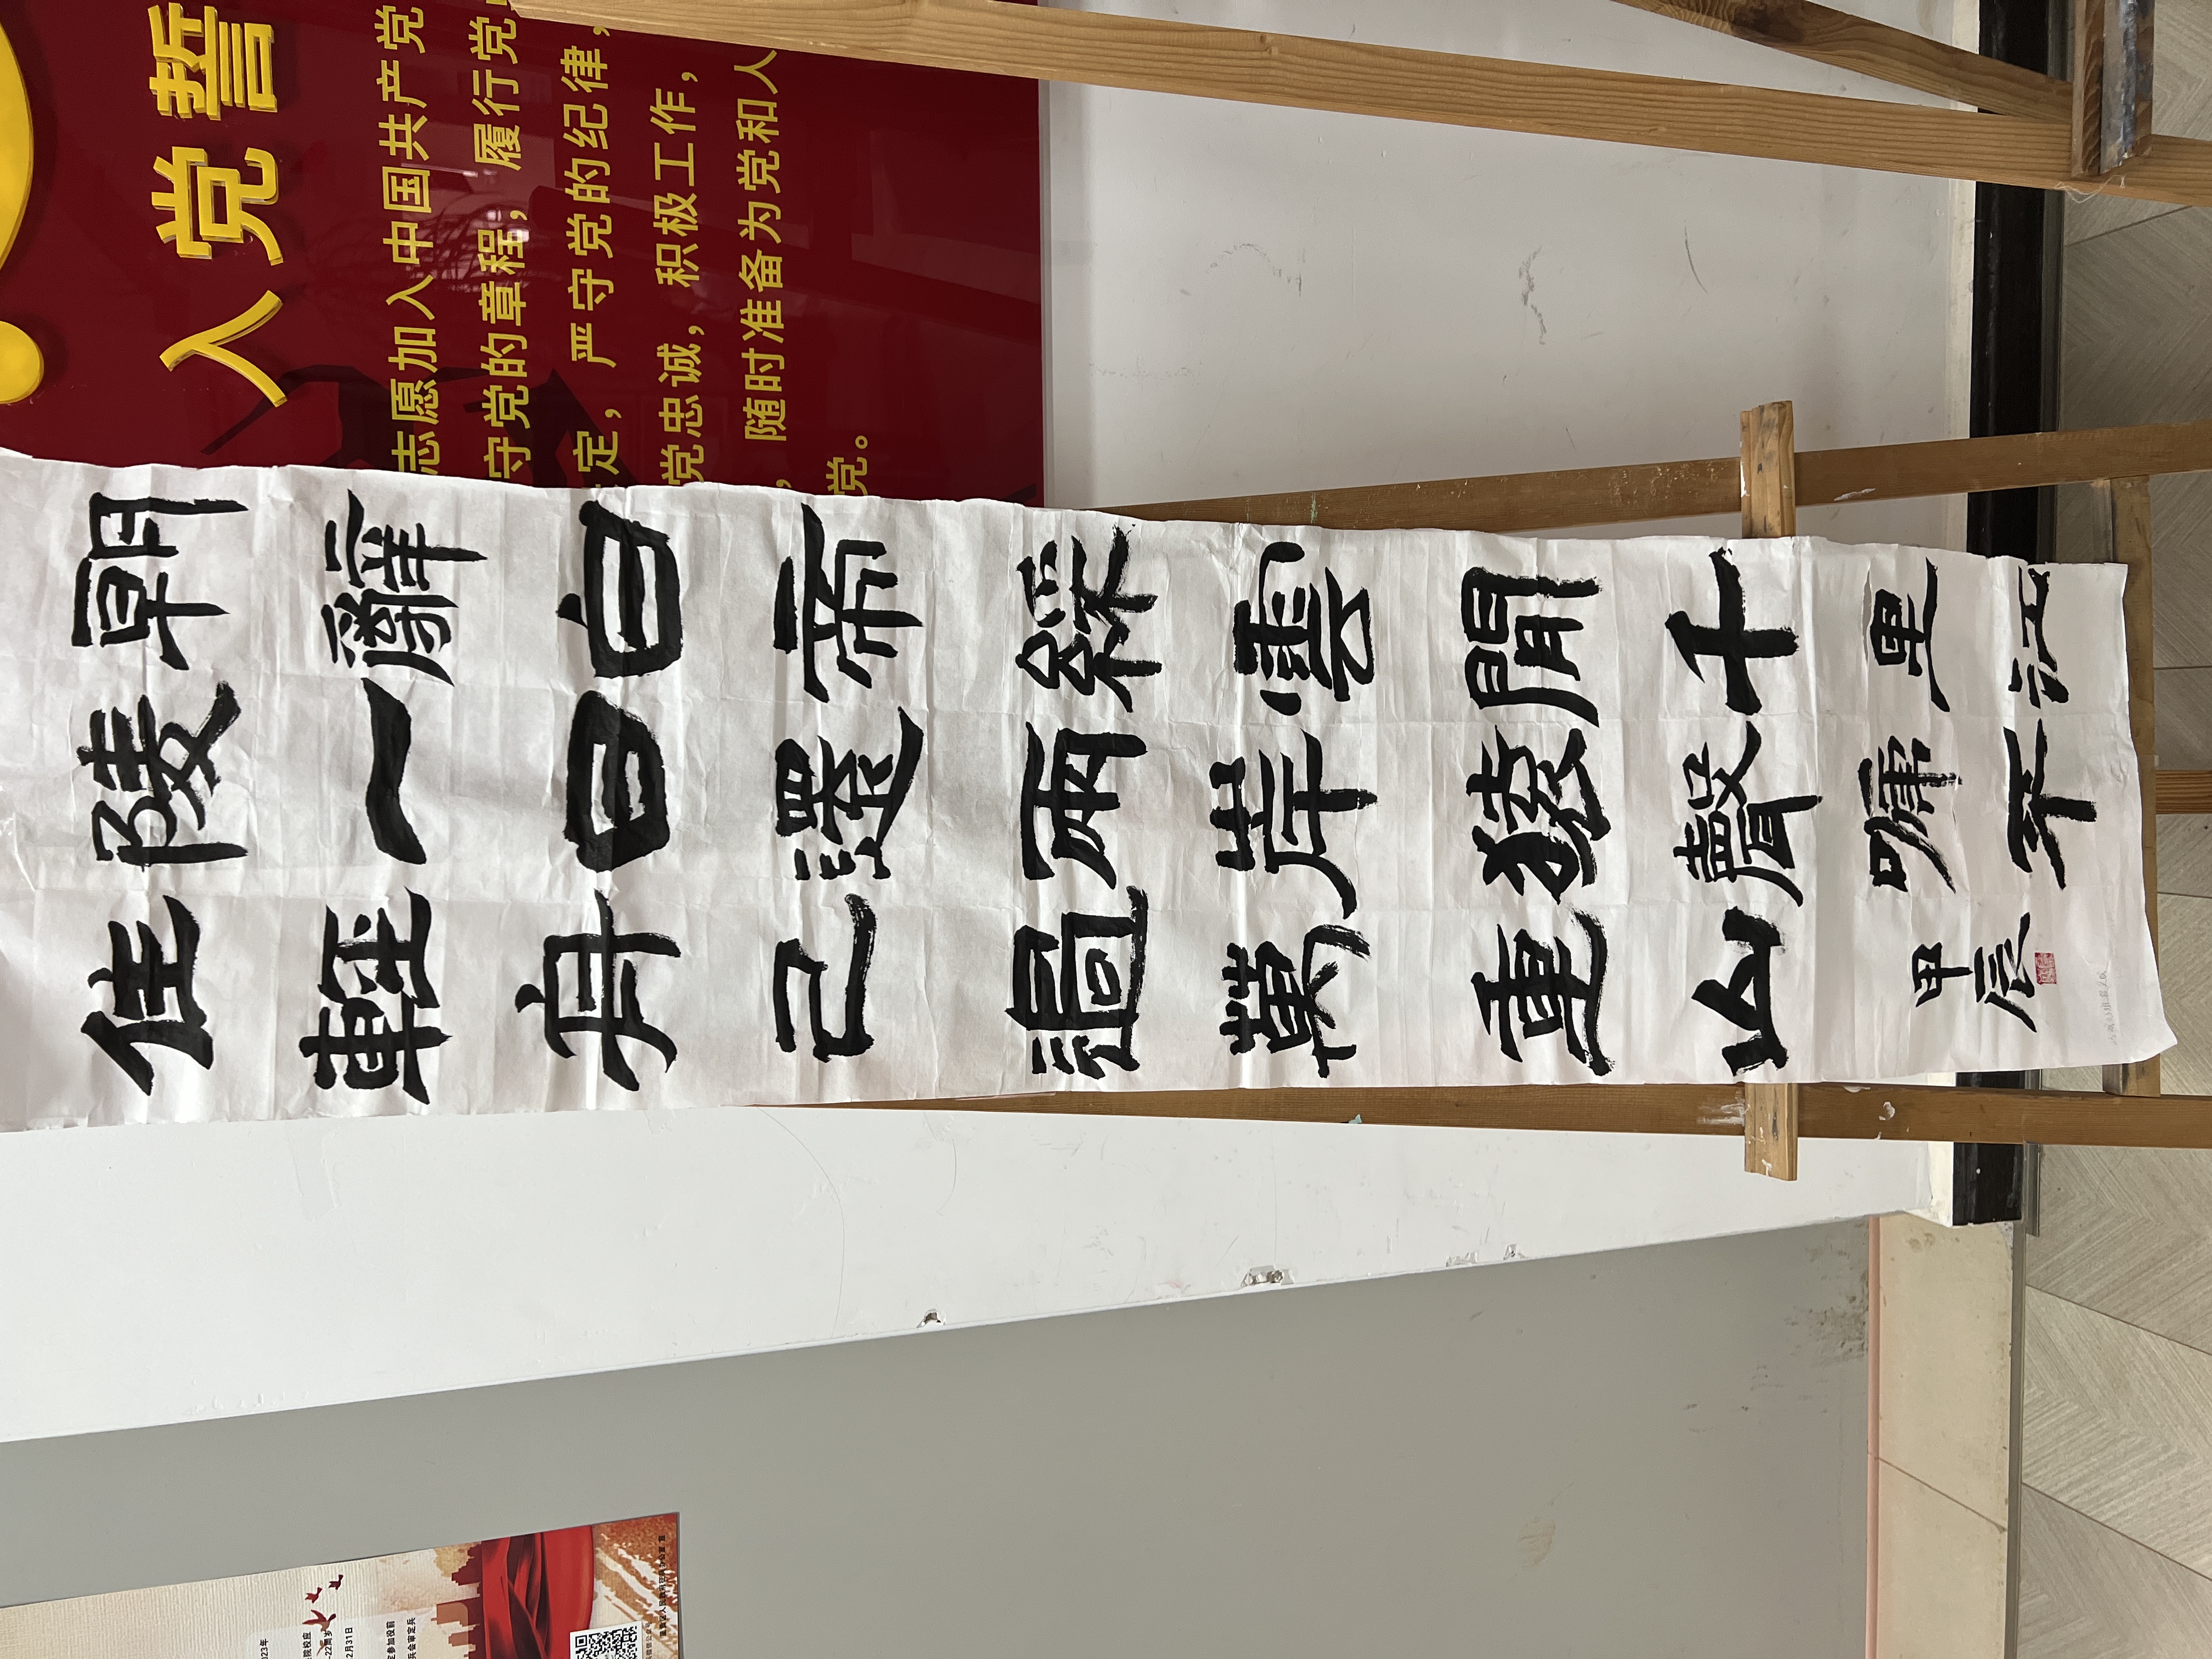 朝辭白帝綵雲間千里江
陵一日還兩岸猿聲啼不
住輕舟已過萬重山
甲辰
入党誓
志愿加入中国共产党
守党的章程，履行党
定，严守党的纪律，
党忠诚，积极工作，
，随时准备为党和人
党。
023年
院校应
-22周岁
2月31日